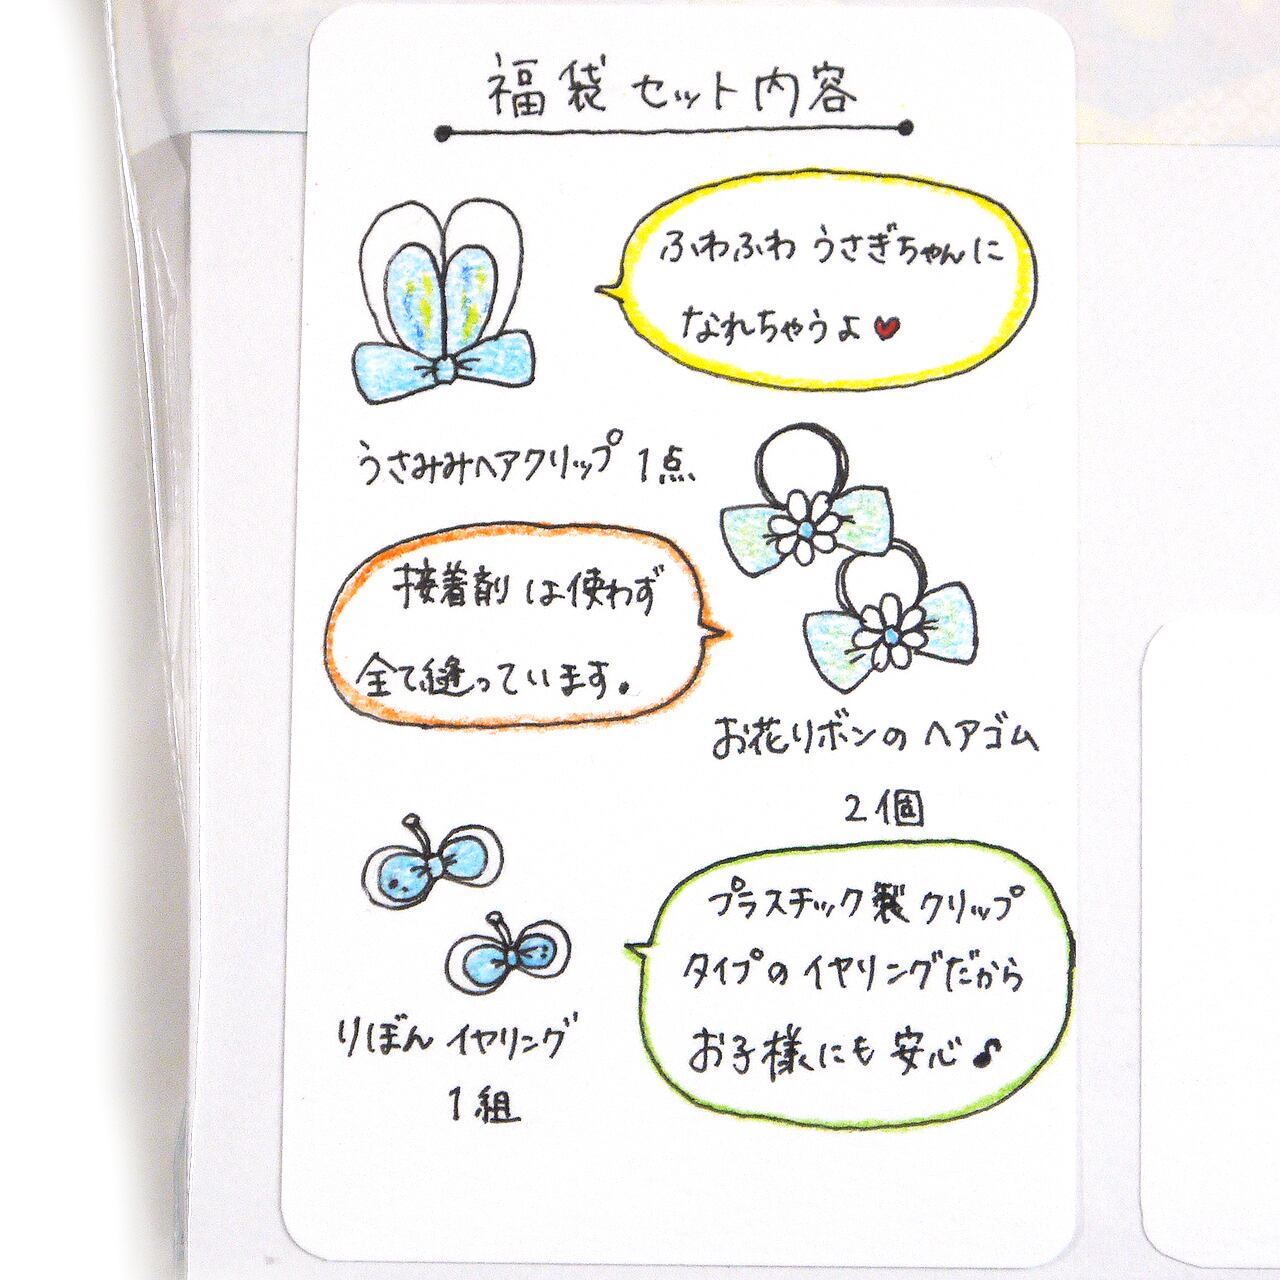 福袋セット内容
ふわふわ うさぎちゃんに
なれちゃうよ♥
うさみみヘアクリップ 1点
接着剤は使わず
全て縫っています。
お花リボンの ヘアゴム
2個
プラスチック製クリップ
タイプのイヤリングだから
お子様にも安心♪
りぼんイヤリング
1組